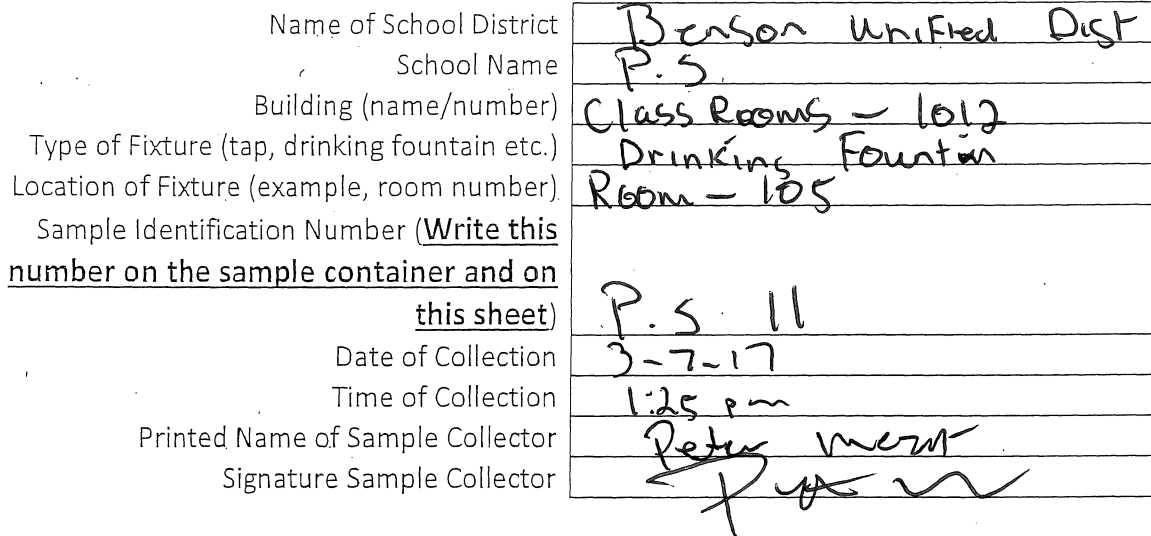 Name of School District Benson Unified Dist
School Name P.S
Building (name/number) Class Rooms - 1012
Type of Fixture (tap, drinking fountain etc.) Drinking Fountin
Location of Fixture (example, room number) Room - 105
Sample Identification Number (Write this
number on the sample container and on
this sheet) P.S 11
Date of Collection 3-7-17
Time of Collection 1:25 pm
Printed Name of Sample Collector Peter
Signature Sample Collector